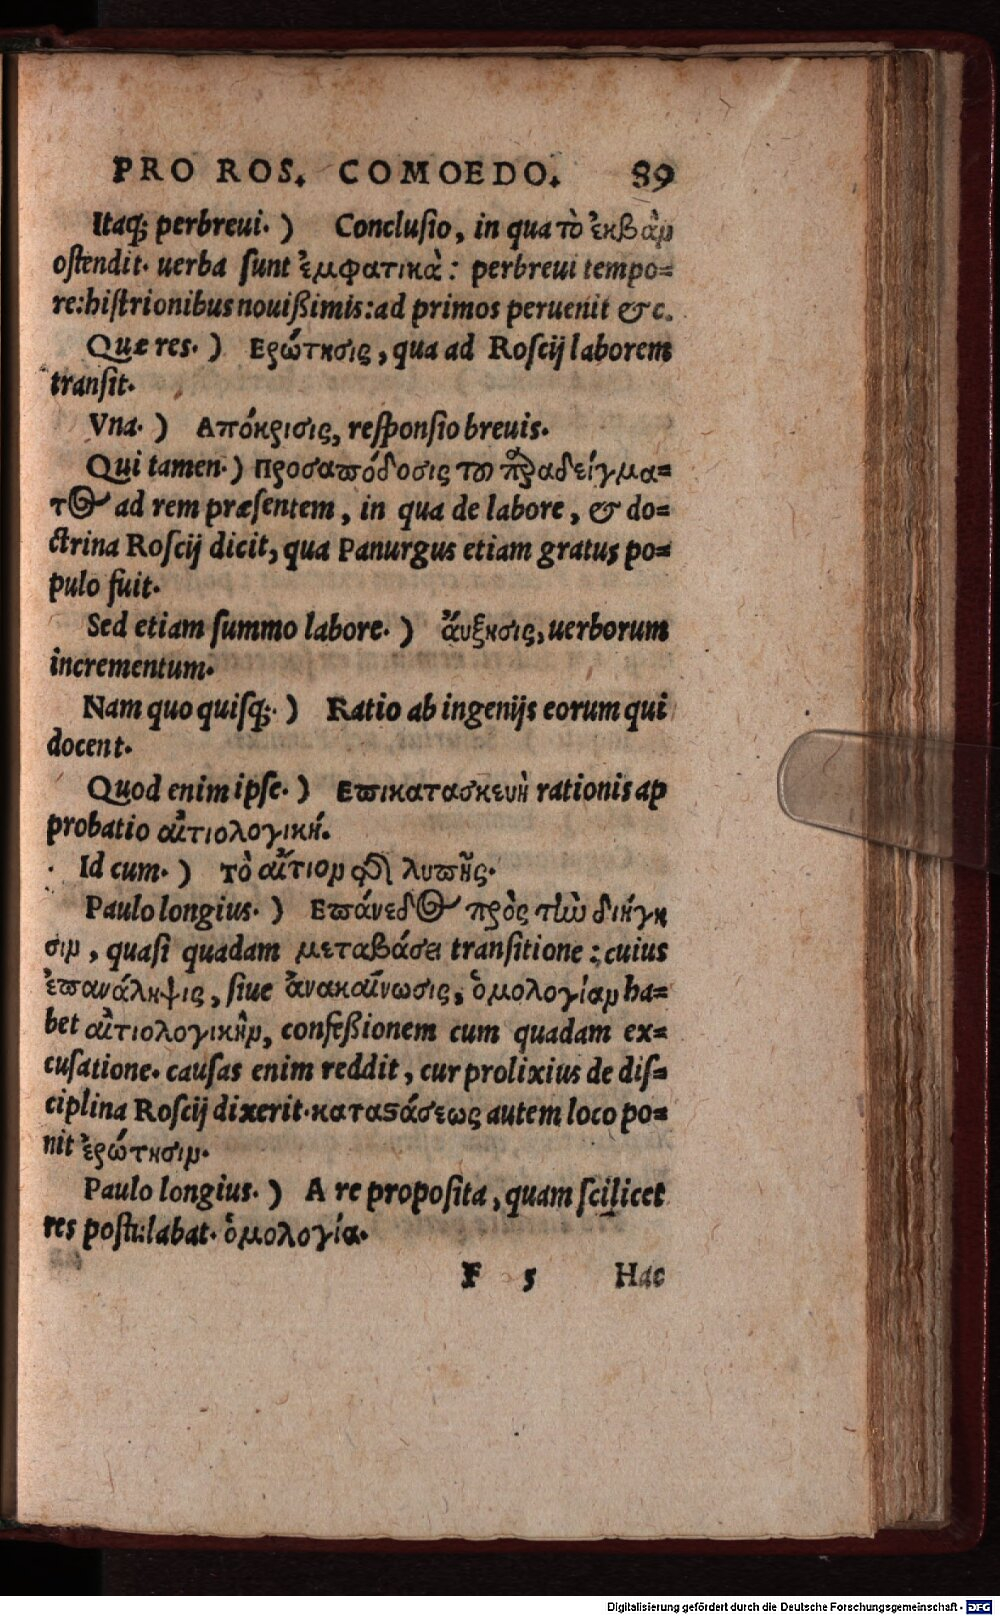 PRO ROS. COMOEDO. 89
Itaq; perbreui. ) Conclusio, in qua τὸ ἐκβὰν
ostendit. uerba sunt ἐμφατικὰ: perbreui tempo=
re: histrionibus nouißimis: ad primos peruenit & c.
Quæ res. ) Ερώτησις, qua ad Roscij laborem
transit.
Vna. ) Απόκρισις, responsio breuis.
Qui tamen. ) Προσαπόδοσις τοῦ παραδείγμα=
τος ad rem præsentem, in qua de labore, & do=
ctrina Roscij dicit, qua Panurgus etiam gratus po=
pulo fuit.
Sed etiam summo labore. ) ἄυξησις, uerborum
incrementum.
Nam quo quisq;. ) Ratio ab ingenijs eorum qui
docent.
Quod enim ipse. ) Επικατασκευὴ rationis ap
probatio αἰτιολογική.
Id cum. ) Τὸ αἴτιον τῆς λυπῆς.
Paulo longius. ) Επάνεδος πρὸς τὴν διήγη
σιν, quasi quadam μεταβάσει transitione: cuius
ἐπανάληψις, siue ἀνακαίνωσις, ὁμολογίαν ha=
bet αἰτιολογικὴν, confeßionem cum quadam ex=
cusatione. causas enim reddit, cur prolixius de dis=
ciplina Roscij dixerit. καταστάσεως autem loco po=
nit ἐρώτησιν.
Paulo longius. ) A re proposita, quam scilicet
res postulabat. ὁμολογία.
F 5 Hac
Digitalisierung gefördert durch die Deutsche Forschungsgemeinschaft - DFG